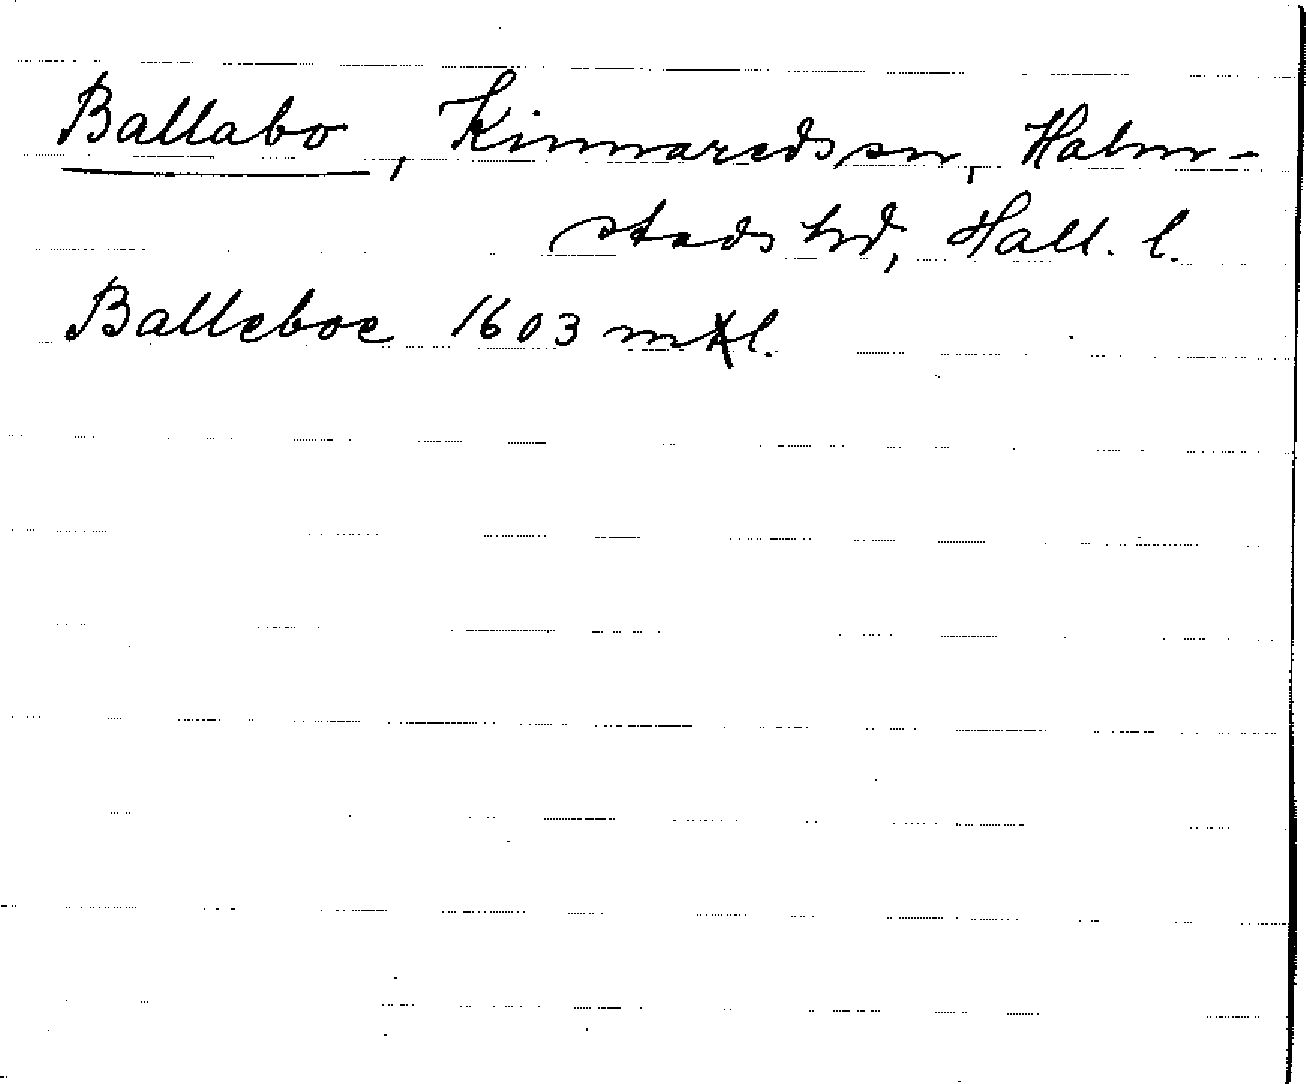 Ballabo, Kinnaredssn, Halm-
stads hd, Hall. l.
Balleboe 1603 mtl.